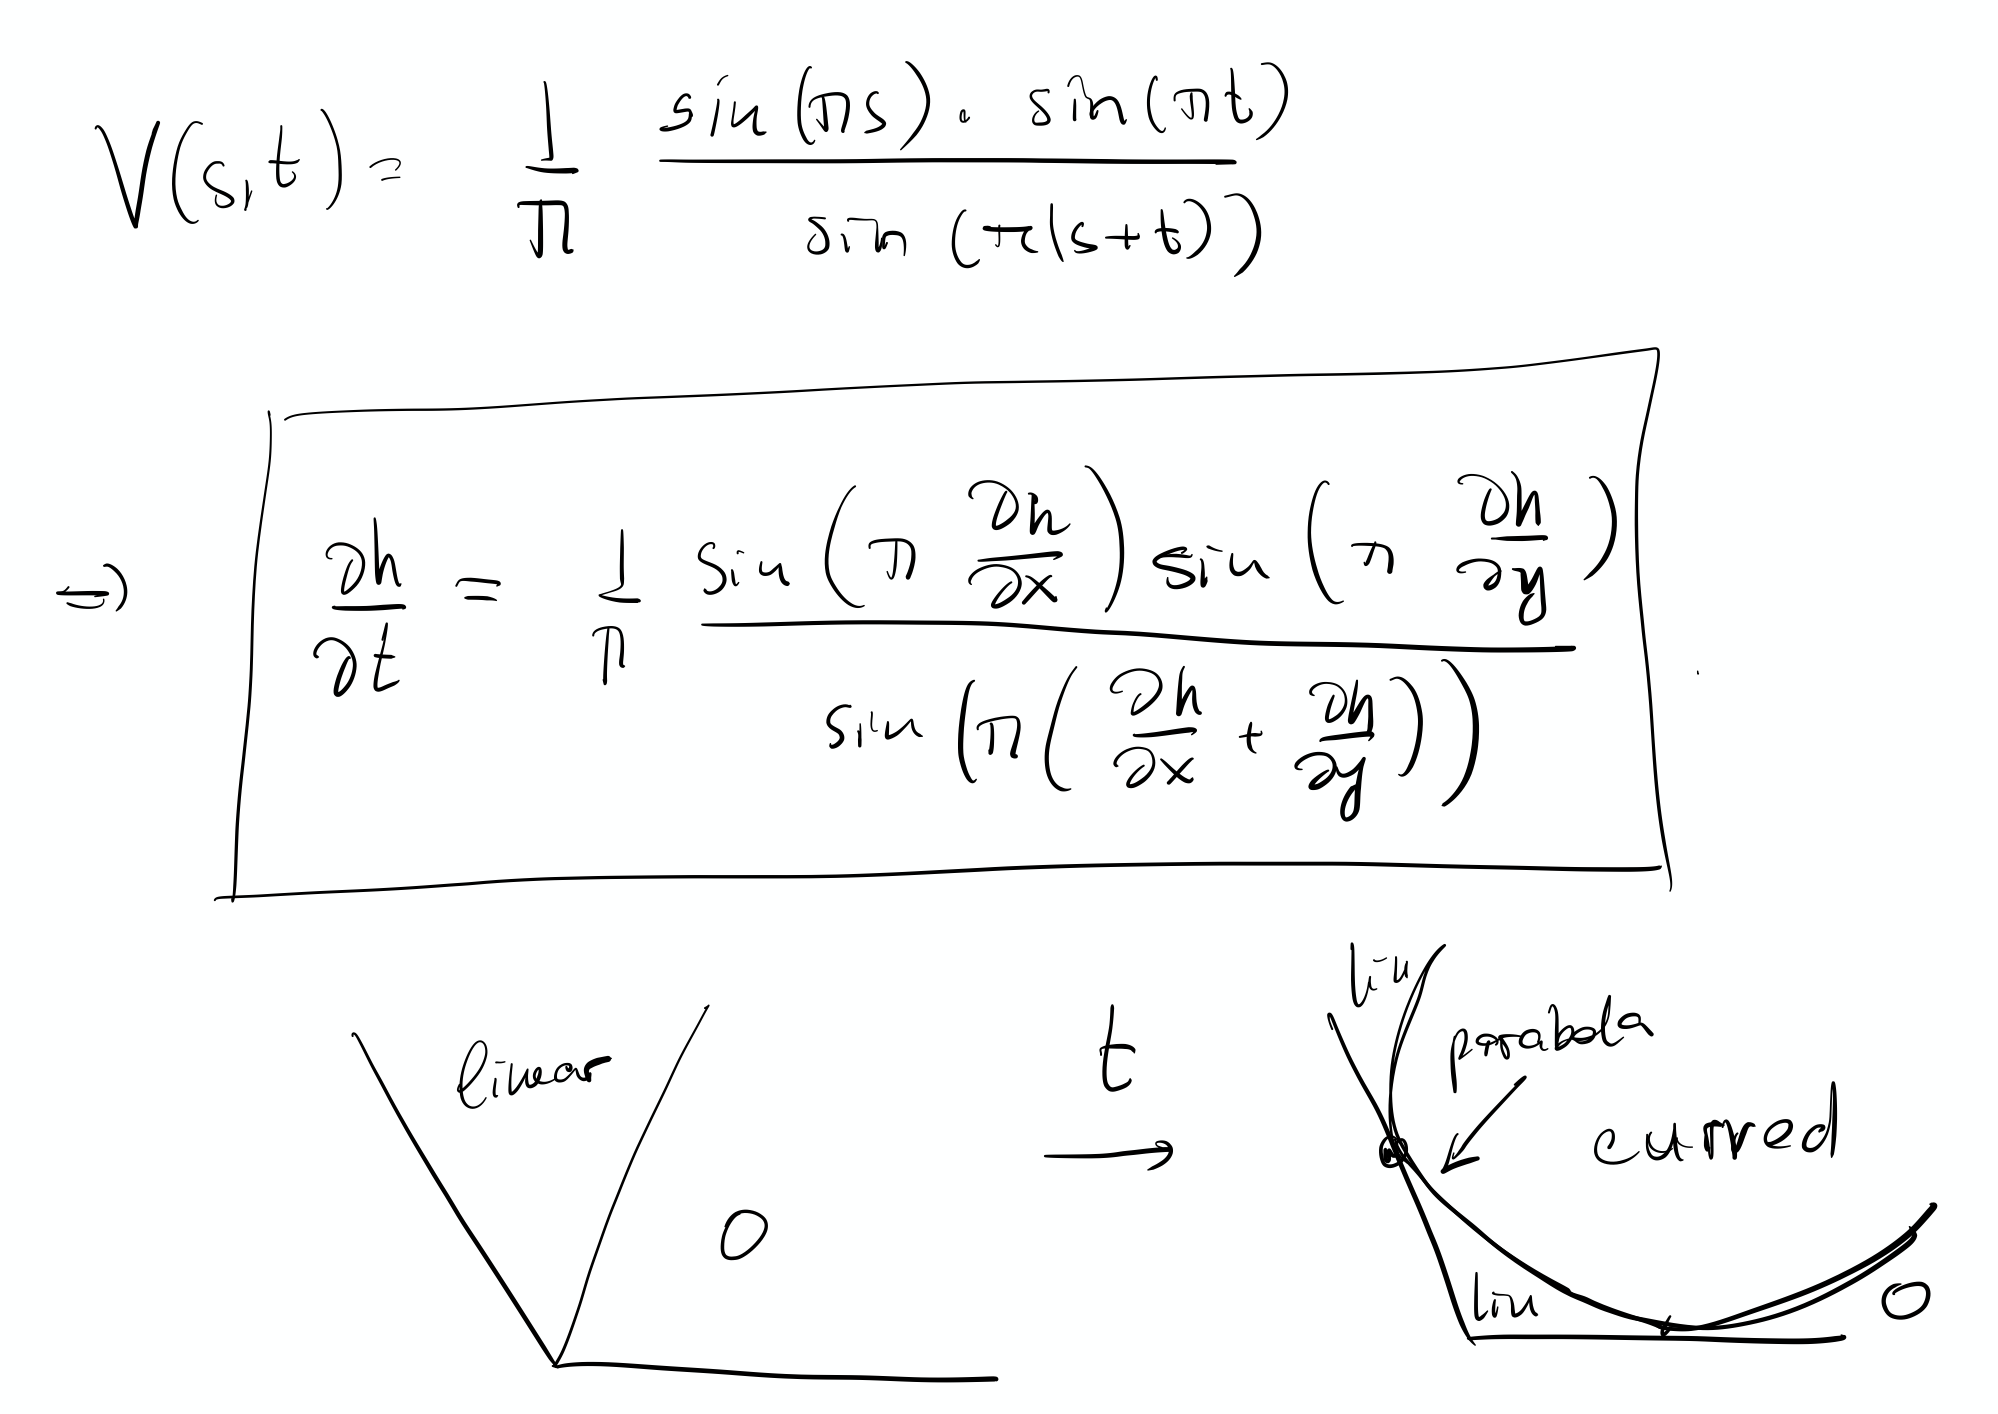 V(s,t) = 1/π sin(πs) · sin(πt) / sin(π(s+t))
⇒ ∂h/∂t = 1/π sin(π ∂h/∂x) sin(π ∂h/∂y) / sin(π(∂h/∂x + ∂h/∂y))
linear
0
t
→
lin
parabola
curved
lin
0